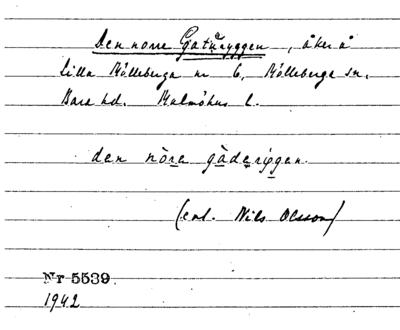 Den norre Gaturyggen, åker å
Lilla Mölleberga nr 6, Mölleberga sn.
Bara hd. Malmöhus l.
den nòre gàderyggen.
(enl. Nils Olsson)
Nr 5539.
1942